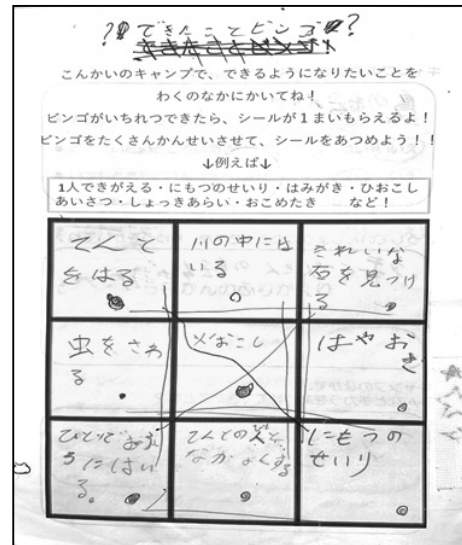 ?できたことビンゴ?
こんかいのキャンプで、できるようになりたいことを
わくのなかにかいてね!
ビンゴがいちれつできたら、シールが1まいもらえるよ!
ビンゴをたくさんかんせいさせて、シールをあつめよう!!
↓例えば↓
1人できがえる・にもつのせいり・はみがき・ひおこし
あいさつ・しょっきあらい・おこめたき など!
てんと
をはる
川の中には
いる
きれいな
石を見つけ
る
虫をさわ
る
火おこし
はやおき
ひとりでおふ
ろにはい
る。
てんとの人と、
なかよくする
にもつの
せいり